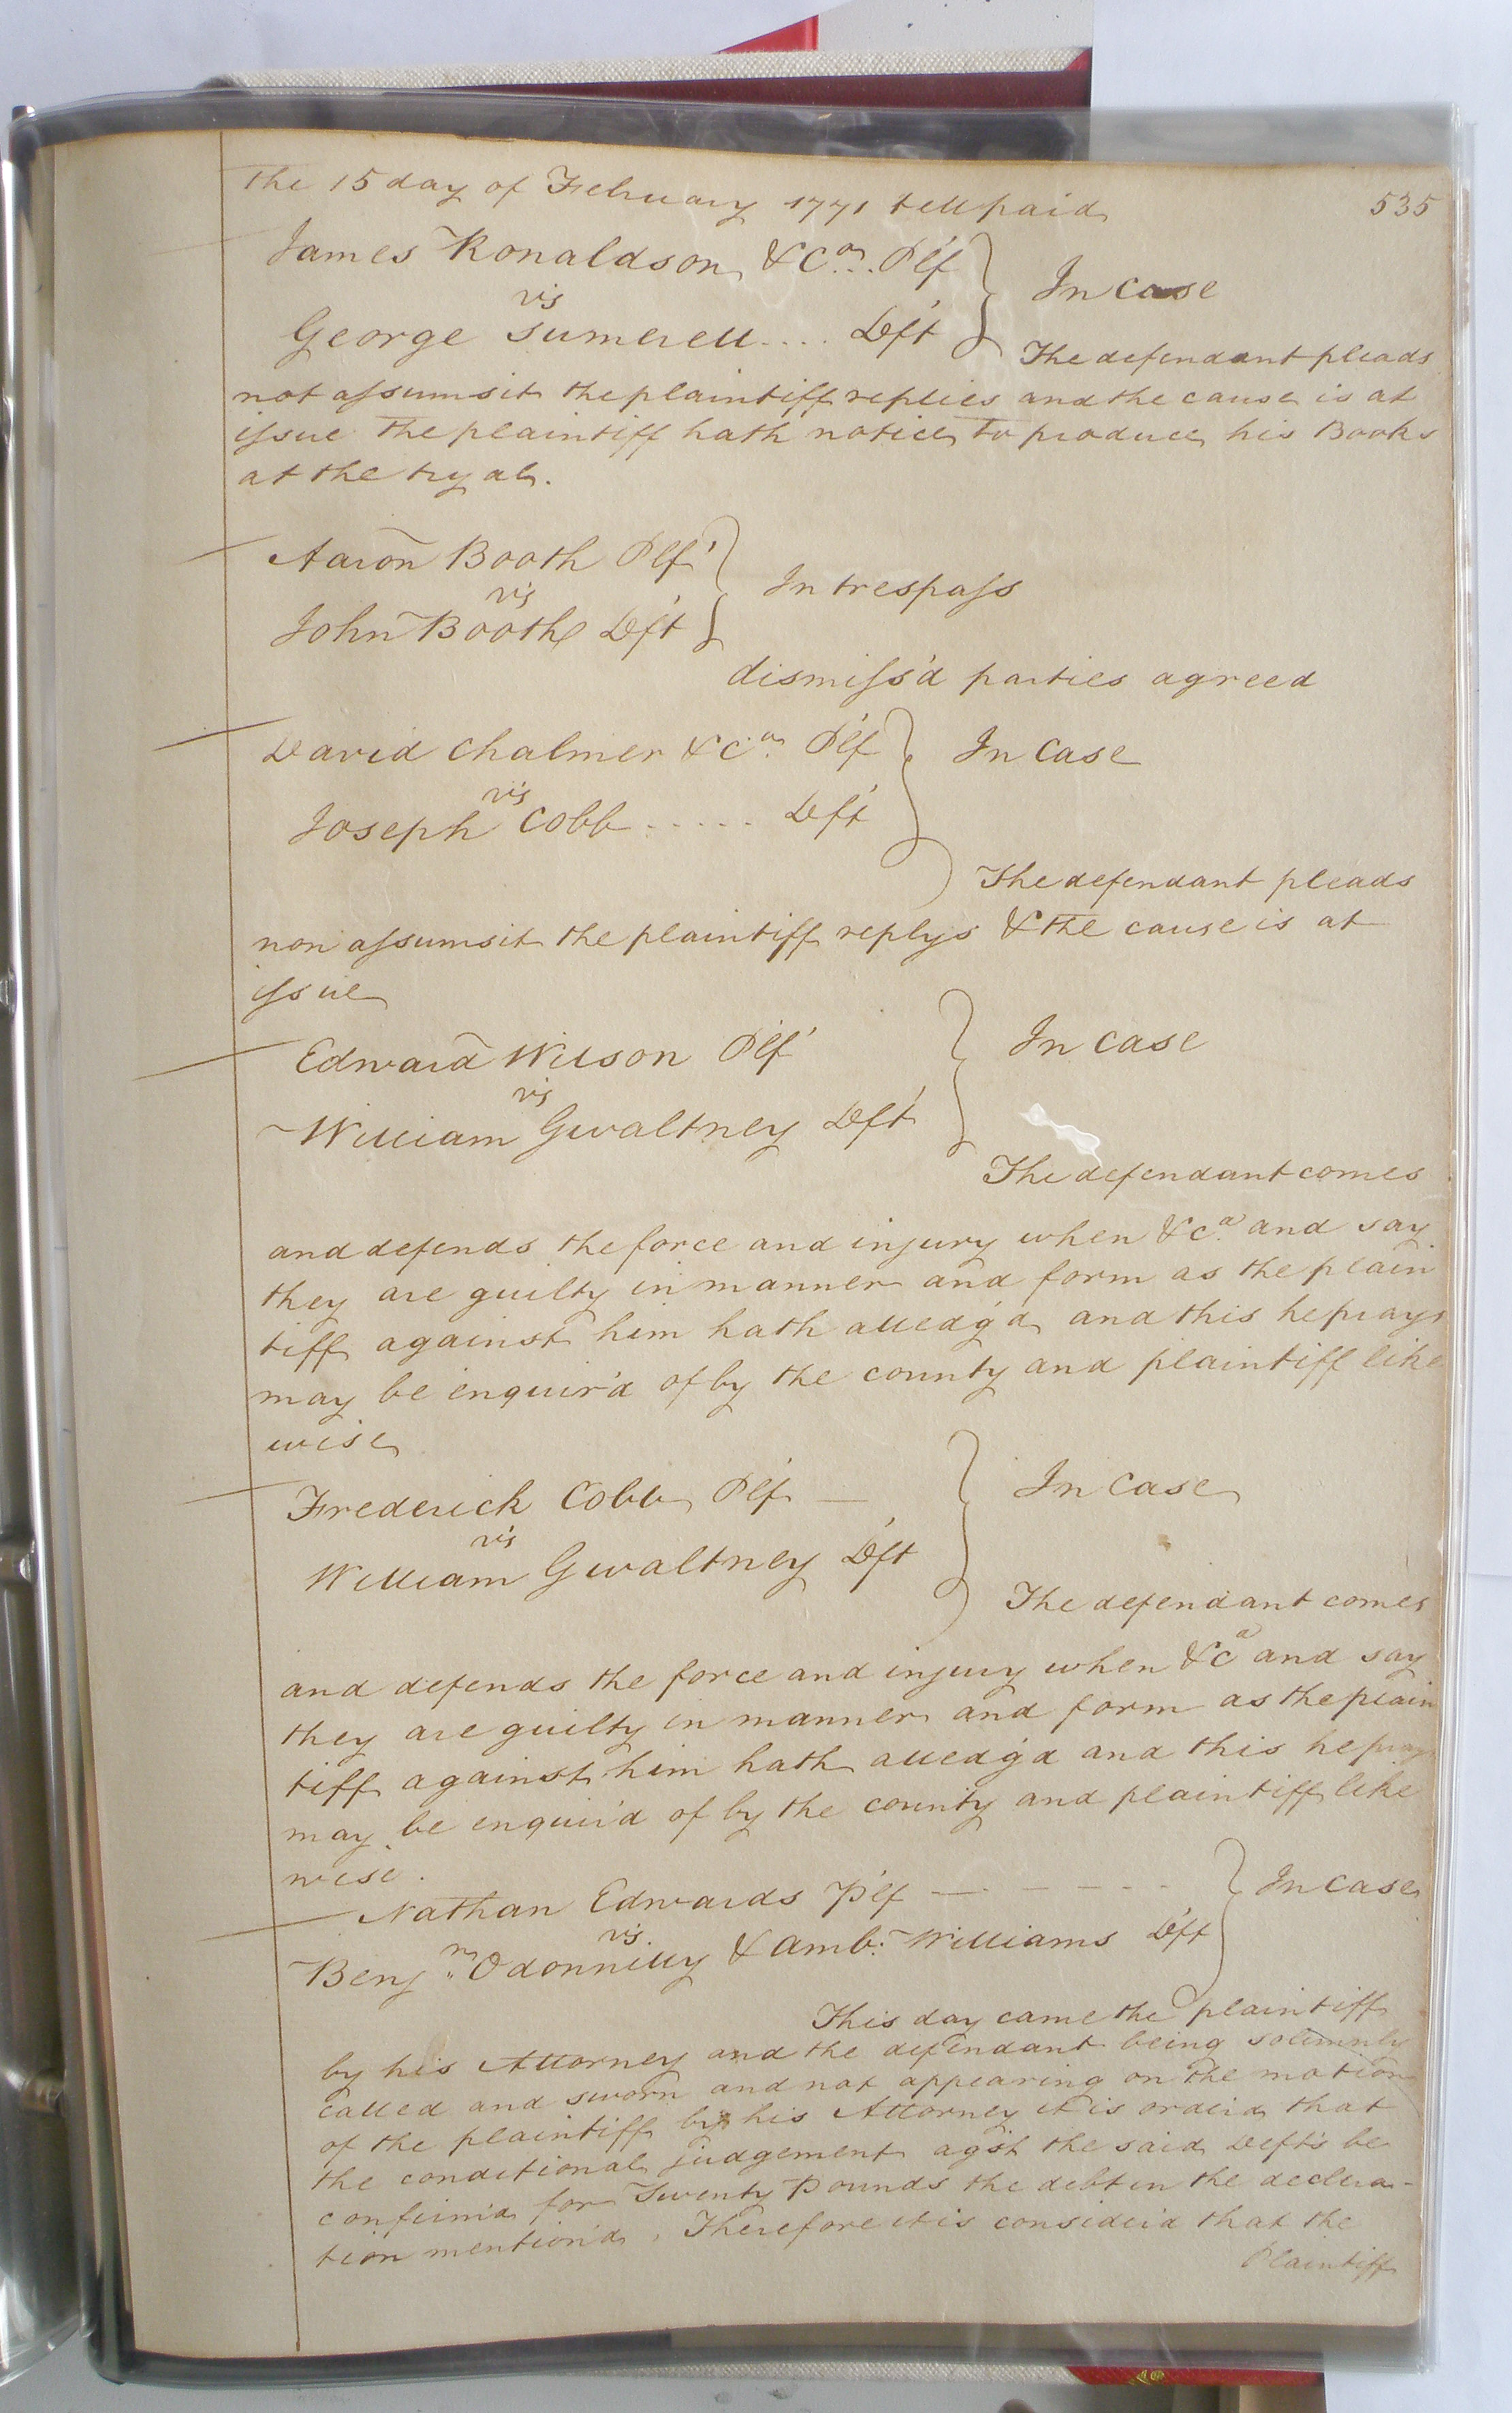 the 15 day of February 1771 till paid
535
James Ronaldson & Co. Plf
vs
George Sumerell .... Deft
In case
The defendant pleads
not assumsit the plaintiff replies and the cause is at
issue the plaintiff hath notice to produce his Books
at the tryal.
Aaron Booth Plf
vs
John Booth Deft
In trespass
dismiss'd parties agreed
David Chalmer & Co. Plf
vs
Joseph Cobb ..... Deft
In Case
The defendant pleads
non assumsit the plaintiff replys & the cause is at
issue
Edward Wilson Plf
vs
William Gwaltney Deft
In case
The defendant comes
and defends the force and injury when &ca and say
they are guilty in manner and form as the plain
tiff against him hath alledg'd and this he prays
may be enquir'd of by the county and plaintiff like
wise
Frederick Cobb Plf —
vs
William Gwaltney Deft
In Case
The defendant comes
and defends the force and injury when &ca and say
they are guilty in manner and form as the plain
tiff against him hath alledg'd and this he prays
may be enquir'd of by the county and plaintiff like
wise.
Nathan Edwards Plf — — — —
vs
Benjn Odonnilly & Amb: Williams Deft
In case
This day came the plaintiff
by his Attorney and the defendant being solemnly
called and sworn and not appearing on the motion
of the plaintiff by his Attorney it is orderd that
the conditional judgement agst the said Defts be
confirm'd for Twenty Pounds the debt in the declera-
tion mention'd, Therefore it is considerd that the
Plaintiff